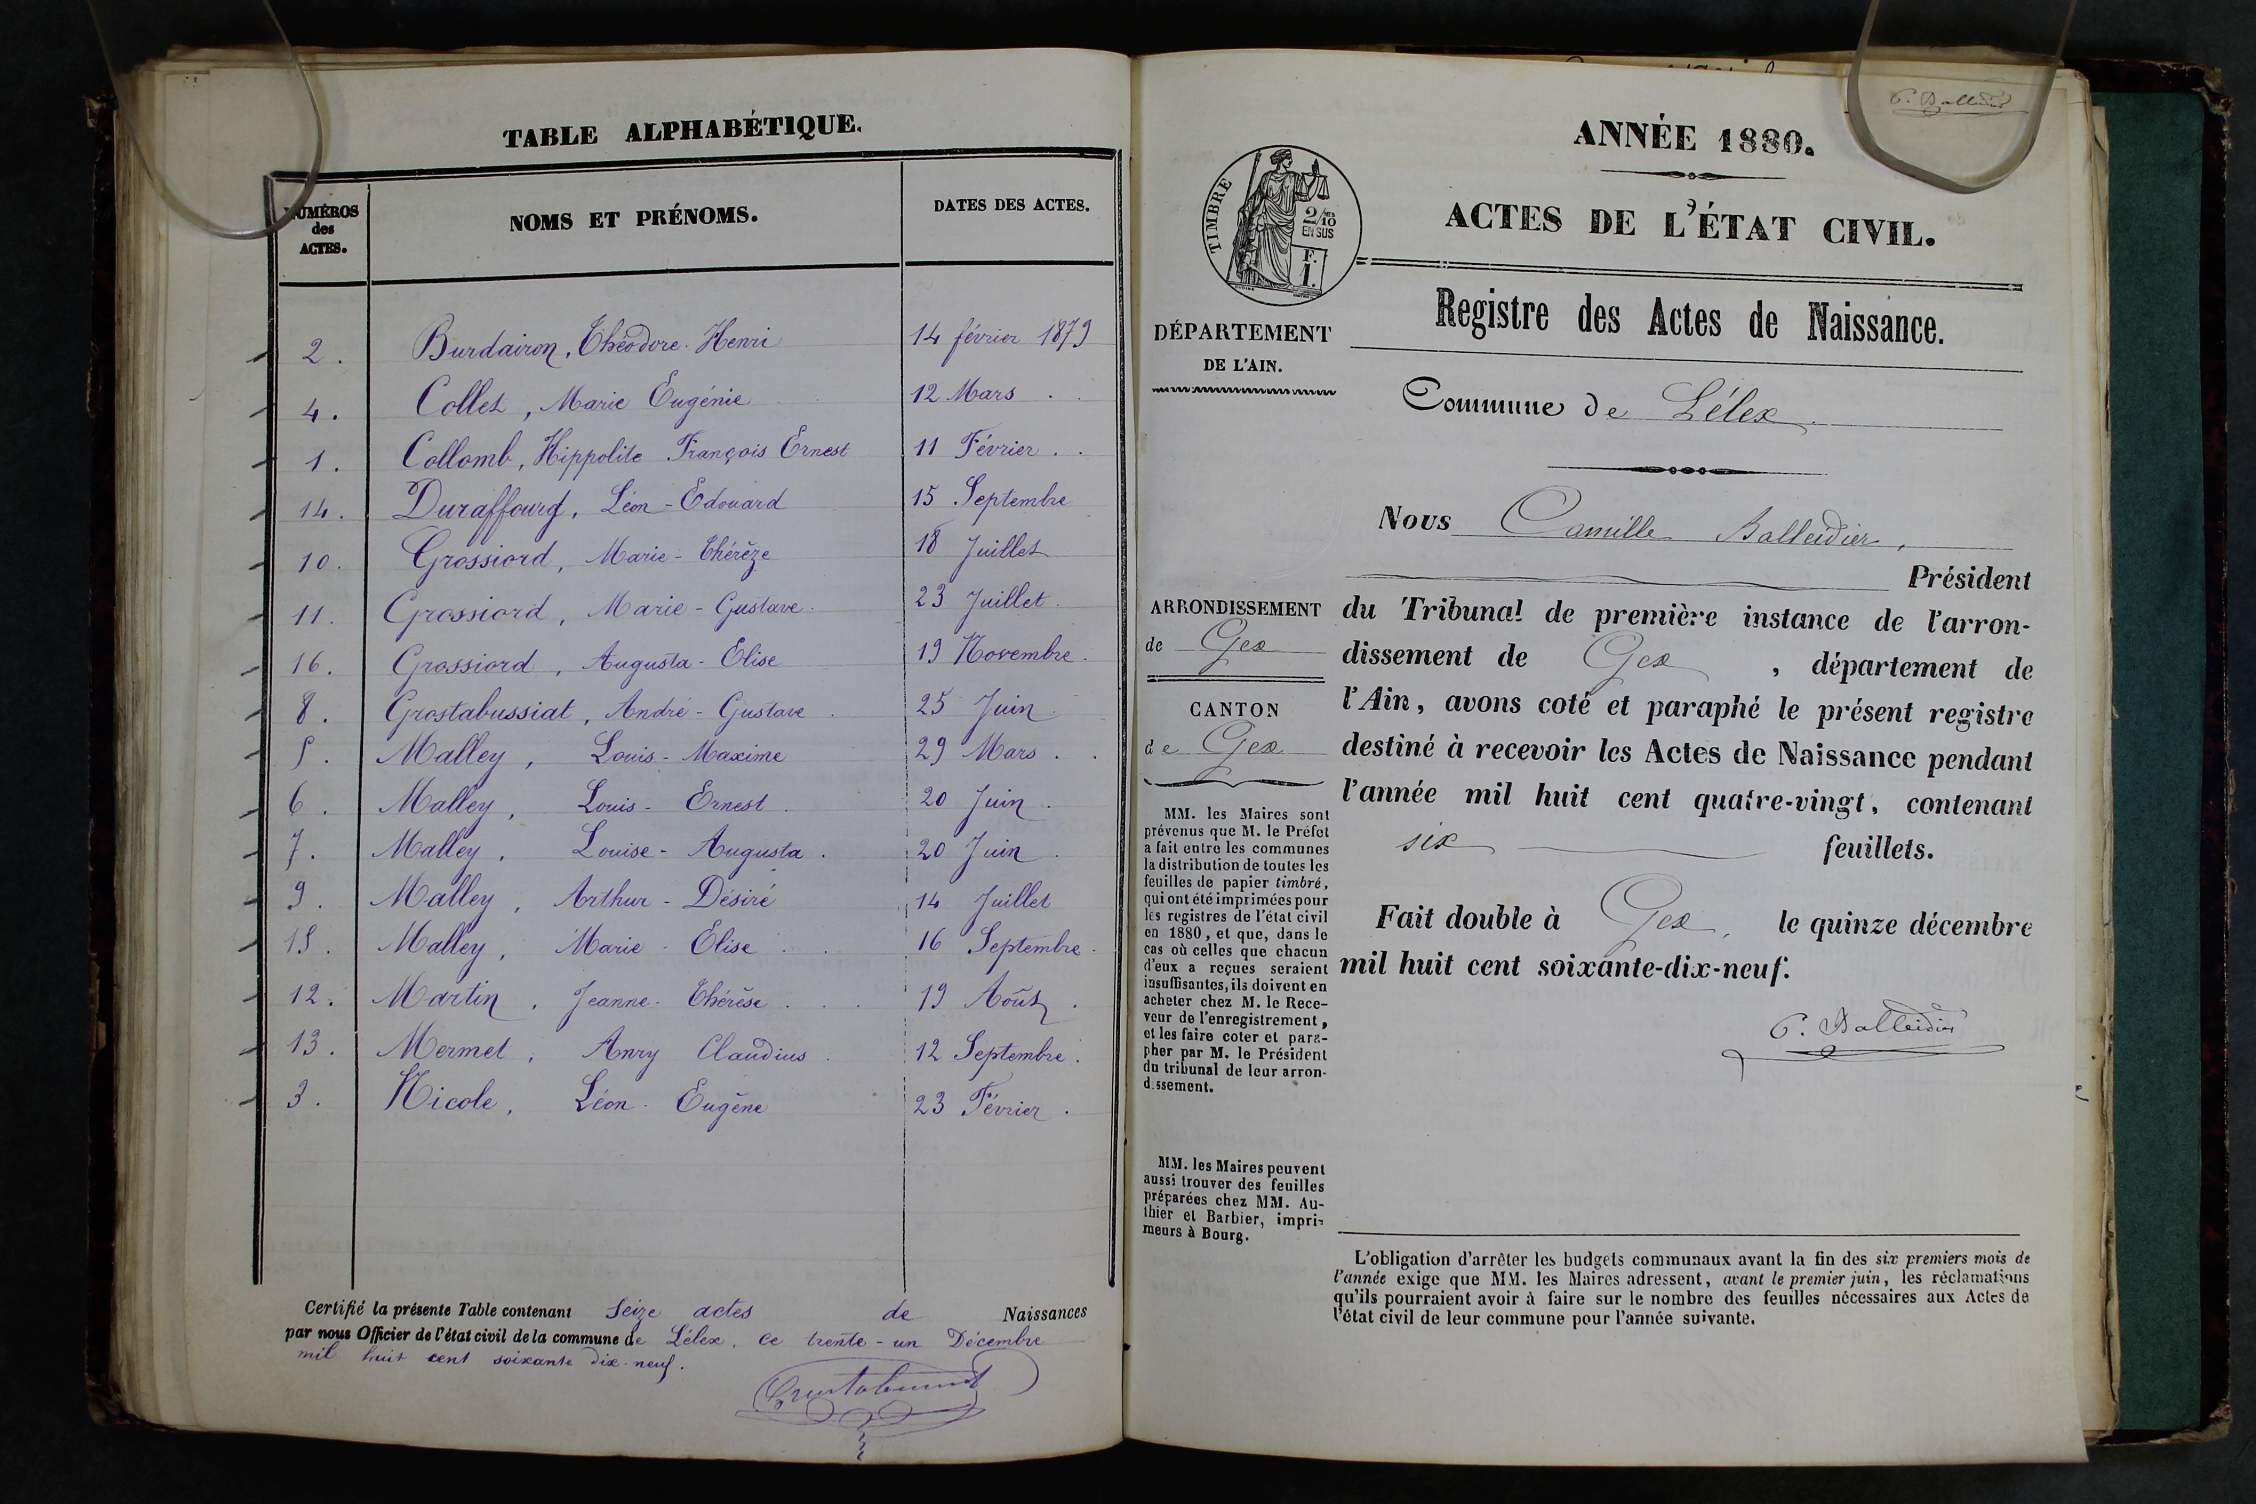 TABLE ALPHABÉTIQUE.
NUMÉROS des ACTES. NOMS ET PRÉNOMS. DATES DES ACTES.
2. Burdairon, Théodore-Henri 14 février 1879
4. Collet, Marie Eugénie 12 Mars
1. Collomb, Hippolite François Ernest 11 Février
14. Duraffourg, Léon-Edouard 15 Septembre
10. Grossiord, Marie-Thérèze 18 Juillet
11. Grossiord, Marie-Gustave. 23 Juillet.
16. Grossiord, Augusta-Elise 19 Novembre.
8. Grostabussiat, André-Gustave. 25 Juin
5. Malley, Louis-Maxime 29 Mars
6. Malley, Louis-Ernest. 20 Juin
7. Malley, Louise-Augusta. 20 Juin
9. Malley, Arthur-Désiré 14 Juillet
15. Malley, Marie-Elise 16 Septembre
12. Martin, Jeanne-Thérèse 19 Août
13. Mermet, Anry Claudius 12 Septembre.
3. Nicole, Léon-Eugène 23 Février.
Certifié la présente Table contenant Seize actes de Naissances
par nous Officier de l'état civil de la commune de Lélex, ce trente-un Décembre
mil huit cent soixante dix-neuf.
C. Balleidier
ANNÉE 1880.
TIMBRE
2/10 EN SUS
F. 1.
ACTES DE L'ÉTAT CIVIL.
Registre des Actes de Naissance.
DÉPARTEMENT
DE L'AIN.
Commune de Lélex.
Nous Camille Balleidier,
Président
du Tribunal de première instance de l'arron-
dissement de Gex, département de
l'Ain, avons coté et paraphé le présent registre
destiné à recevoir les Actes de Naissance pendant
l'année mil huit cent quatre-vingt, contenant
six feuillets.
Fait double à Gex, le quinze décembre
mil huit cent soixante-dix-neuf.
C. Balleidier
ARRONDISSEMENT
de Gex
CANTON
de Gex
MM. les Maires sont
prévenus que M. le Préfet
a fait entre les communes
la distribution de toutes les
feuilles de papier timbré,
qui ont été imprimées pour
les registres de l'état civil
en 1880, et que, dans le
cas où celles que chacun
d'eux a reçues seraient
insuffisantes, ils doivent en
acheter chez M. le Rece-
veur de l'enregistrement,
et les faire coter et para-
pher par M. le Président
du tribunal de leur arron-
dissement.
MM. les Maires peuvent
aussi trouver des feuilles
préparées chez MM. Au-
thier et Barbier, impri-
meurs à Bourg.
L'obligation d'arrêter les budgets communaux avant la fin des six premiers mois de
l'année exige que MM. les Maires adressent, avant le premier juin, les réclamations
qu'ils pourraient avoir à faire sur le nombre des feuilles nécessaires aux Actes de
l'état civil de leur commune pour l'année suivante.